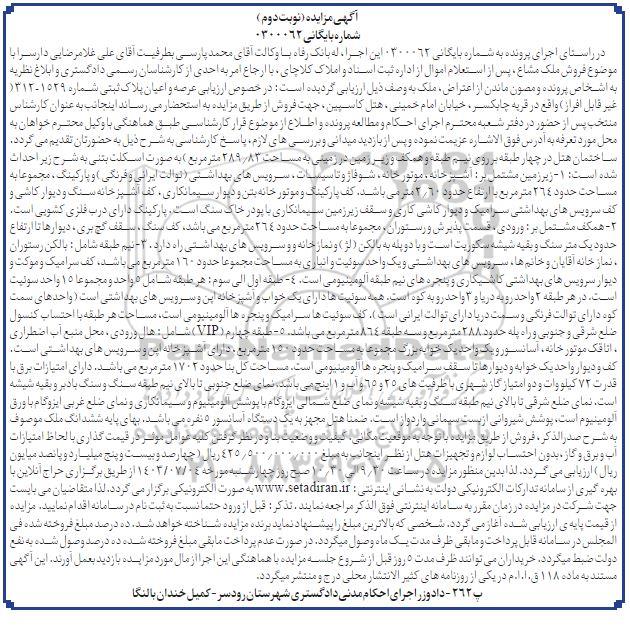 آگهی مزایده (نوبت دوم)
شماره بایگانی ۰۳۰۰۰۶۲
در راستای اجرای پرونده به شماره بایگانی ۰۳۰۰۰۶۲ این اجرا، له بانک رفاه با وکالت آقای محمد پارسی بطرفیت آقای علی غلامرضایی دارسرا با
موضوع فروش ملک مشاع، پس از استعلام اموال از اداره ثبت اسناد و املاک کلاچای، با ارجاع امر به احدی از کارشناسان رسمی دادگستری و ابلاغ نظریه
به اشخاص پرونده و مصون ماندن از اعتراض، ملک به وصف ذیل ارزیابی گردیده است: در خصوص ارزیابی عرصه و اعیان پلاک ثبتی شماره ۱۵۲۹-۳۱۲(
غیر قابل افراز) واقع در قریه چابکسر، خیابان امام خمینی، هتل کاسپین، جهت فروش از طریق مزایده به استحضار می رساند اینجانب به عنوان کارشناس
منتخب پس از حضور در دفتر شعبه محترم اجرای احکام و مطالعه پرونده و اطلاع از موضوع قرار کارشناسی طبق هماهنگی با وکیل محترم خواهان به
محل مورد تعرفه به آدرس فوق الاشاره عزیمت نموده و پس از بازدید میدانی و بررسی های لازم، پاسخ کارشناسی به شرح ذیل به حضورتان تقدیم می گردد.
ساختمان هتل در چهار طبقه بر روی نیم طبقه و همکف و زیرزمین در زمینی به مساحت ۲۸۹۰/۸۳ مترمربع) به صورت اسکلت بتنی به شرح زیر احداث
شده است: ۱-زیرزمین مشتمل بر: آشپزخانه، موتورخانه، شوفاژ و تاسیسات، سرویس های بهداشتی (توالت ایرانی و فرنگی) و پارکینگ، مجموعا به
مساحت حدود ۲۶۴ مترمربع با ارتفاع حدود ۲/۶۰ متر می باشد. کف پارکینگ و موتورخانه بتن و دیوار سیمانکاری، کف آشپزخانه سنگ و دیوار کاشی و
کف سرویس های بهداشتی سرامیک و دیوار کاشی کاری و سقف زیرزمین سیمانکاری با پودر خاک سنگ است، پارکینگ دارای درب فلزی کشویی است.
۲-همکف مشتمل بر: ورودی، قسمت پذیرش و رستوران، مجموعا به مساحت حدود ۲۶۴ مترمربع می باشد، کف سنگ، سقف گچ بری، دیوارها تا ارتفاع
حدود یک متر سنگ و بقیه شیشه سکوریت است و با دو پله به بالکن (لژ) و نمازخانه و سرویس های بهداشتی راه دارد. ۳-نیم طبقه شامل: بالکن رستوران
، نمازخانه آقایان و خانم ها، سرویس های بهداشتی و یک واحد سوئیت و انباری به مساحت مجموعا حدود ۱۶۰ مترمربع می باشد، کف سرامیک و موکت و
دیوار سرویس های بهداشتی کاشیکاری و پنجره های نیم طبقه آلومینیومی است. ۴-طبقه اول الی سوم: هر طبقه شامل ۵ واحد و مجموعا ۱۵ واحد سوئیت
است. در هر طبقه ۲ واحد رو به دریا و ۳ واحد رو به کوه است. همه سوئیت ها دارای یک خواب و آشپزخانه اپن و سرویس های بهداشتی است (واحدهای سمت
کوه دارای توالت فرنگی و سمت دریا دارای توالت ایرانی است)، کف سوئیت ها سرامیک و پنجره ها آلومینیومی است، مساحت هر طبقه با احتساب کنسول
ضلع شرقی و جنوبی و راه پله حدود ۲۸۸ مترمربع و سه طبقه ۸۶۴ مترمربع می باشد. ۵-طبقه چهارم (VIP) شامل: هال ورودی، محل منبع آب اضطراری
، اتاقک موتورخانه، آسانسور و یک واحد یک خوابه بزرگ مجموعا به مساحت حدود ۱۵۰ مترمربع، دارای آشپزخانه اپن و سرویس های بهداشتی است.
کف و دیوار واحد یک خوابه و دیوارها تا سقف سرامیک و پنجره ها آلومینیوم است. مساحت کل بنا حدود ۱۷۰۲ مترمربع می باشد. دارای امتیازات برق با
قدرت ۷۲ کیلووات و دو امتیاز گاز شهری با ظرفیت های ۲۵ و ۶۵ و آب و ۱ اینچ می باشد. نمای ضلع جنوبی تا بالای نیم طبقه سنگ و سنگ بادبر و بقیه شیشه
است. نمای ضلع شرقی تا بالای نیم طبقه سنگ و بقیه شیشه و نمای ضلع شمالی ایزوگام با پوشش آلومینیوم و سیمانکاری و نمای ضلع غربی ایزوگام با ورق
آلومینیوم است، پوشش شیروانی ازبست سیمانی واردواز است. ضمنا هتل مجهز به یک دستگاه آسانسور ۵ نفره می باشد. بهای پایه ششدانگ ملک موصوف
به شرح صدرالذکر، فروش از طریق مزایده با توجه به موقعیت مکانی، کیفیت و وضعیت بنا و در نظر گرفتن کلیه عوامل موثر در قیمت گذاری با لحاظ امتیازات
آب و برق و گاز، بدون احتساب لوازم و تجهیزات هتل از نظر اینجانب به مبلغ ۴۲۵/۵۰۰/۰۰۰/۰۰۰ ریال (چهارصد و بیست و پنج میلیارد و پانصد میلیون
ریال) ارزیابی می گردد. لذا بدین منظور مزایده در ساعت ۹/۳۰ الی ۱۰/۳۰ صبح روز چهارشنبه مورخه ۱۴۰۳/۰۷/۰۴ از طریق برگزاری حراج آنلاین با
بهره گیری از سامانه تدارکات الکترونیکی دولت به نشانی اینترنتی: www.setadiran.ir به صورت الکترونیکی برگزار می گردد. لذا متقاضیان می بایست
جهت شرکت در مزایده در زمان مقرر به سامانه اینترنتی فوق الذکر مراجعه نمایند، تذکر: قبل از ورود حتما نسبت به ثبت نام در سامانه اقدام نمایید. مزایده
از قیمت پایه ی ارزیابی شده آغاز می گردد. شخصی که بالاترین مبلغ را پیشنهاد نماید برنده مزایده شناخته خواهد شد. ده درصد مبلغ فروخته شده فی
المجلس در سامانه قابل پرداخت و مابقی ظرف مدت یک ماه وصول میگردد. در صورت عدم پرداخت مابقی مبلغ فروخته شده ده درصد وصول شده به نفع
دولت ضبط میگردد. خریداران می توانند ظرف مدت ۵ روز قبل از شروع جلسه مزایده با هماهنگی این اجرا از مال مورد مزایده بازدید بعمل آورند. این آگهی
مستند به ماده ۱۱۸ ق.ا.ا.م در یکی از روزنامه های کثیر الانتشار محلی درج و منتشر میگردد.
پ۲۶۲- دادورز اجرای احکام مدنی دادگستری شهرستان رودسر - کمیل خندان بالنگا